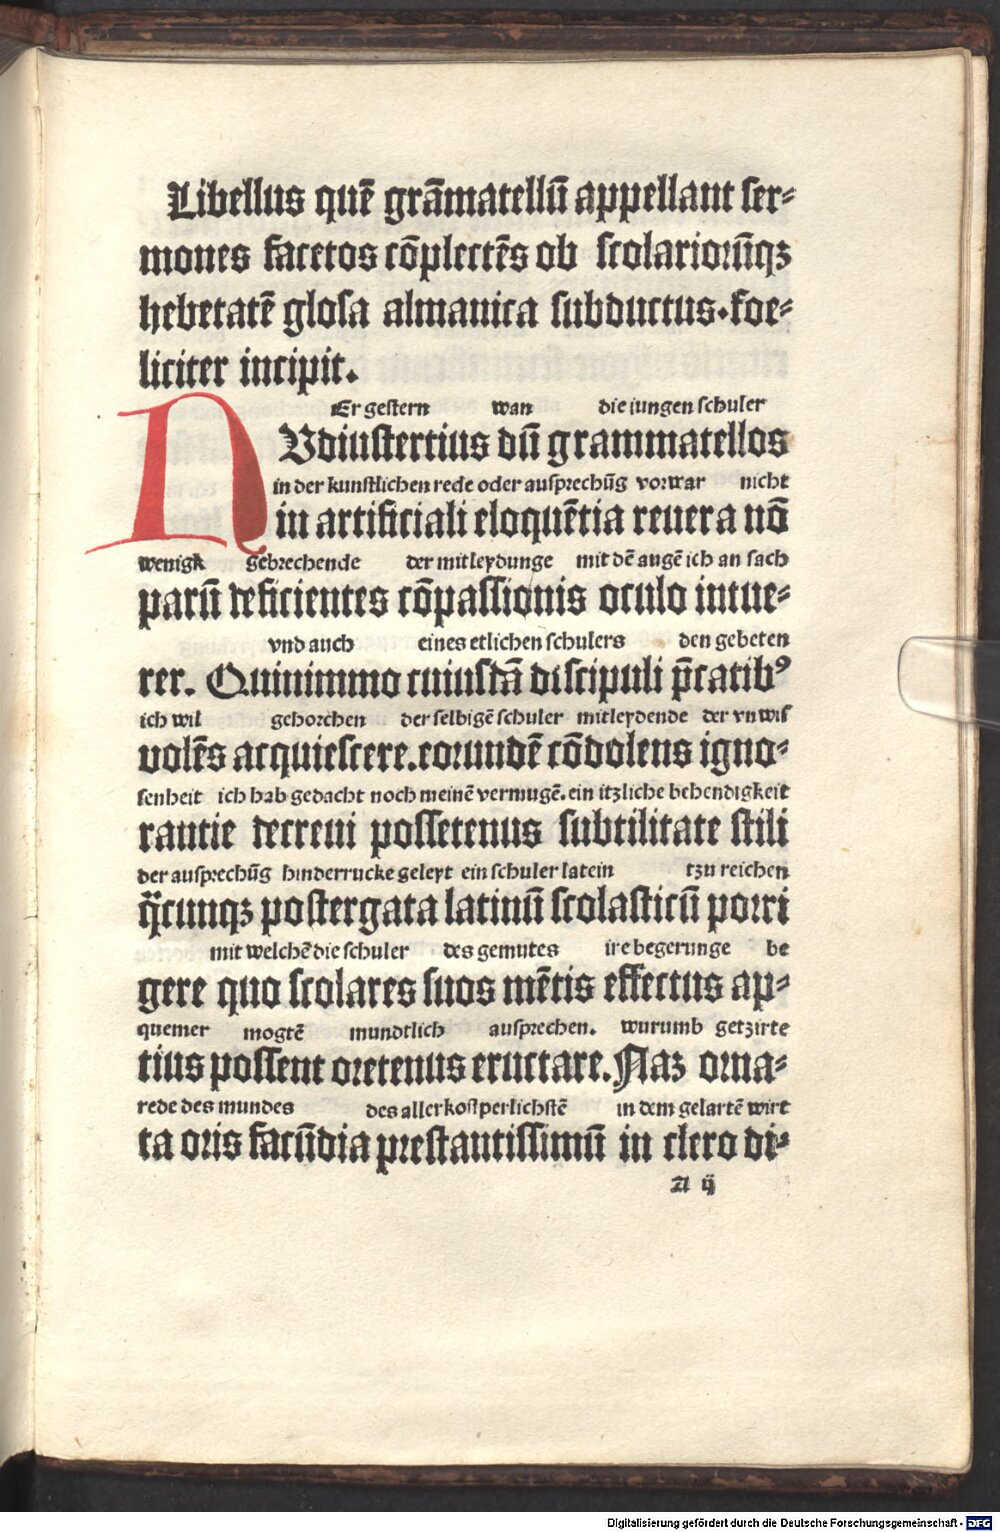 Libellus quē grāmatellū appellant ser⸗
mones facetos cōplectēs ob scolarioꝛūqꝫ
hebetatē glosa almanica subductus. foe⸗
liciter incipit.
Er gestern wan die iungen schuler
NVdiustertius dū grammatellos
in der kunstlichen rede oder ausprechūg vorwar nicht
in artificiali eloquētia reuera nō
wenigk gebrechende der mitleydunge mit dē augē ich an sach
parū deficientes cōpassionis oculo intue⸗
vnd auch eines etlichen schulers den gebeten
rer. Quinimmo cuiusdā discipuli p̄catibꝰ
ich wil gehorchen der selbigē schuler mitleydende der vnwis
volēs acquiescere. eoꝛundē cōdolens igno⸗
senheit ich hab gedacht noch meinē vermugē. ein itzliche behendigkeit
rantie decreui possetenus subtilitate stili
der ausprechūg hinderrucke geleyt ein schuler latein tzu reichen
q̄cunqꝫ postergata latinū scolasticū poꝛri
mit welchē die schuler des gemutes ire begerunge be
gere quo scolares suos mētis effectus ap⸗
quemer mogtē mundtlich ausprechen. wurumb getzirte
tius possent oꝛetenus eructare. Naꝫ oꝛna⸗
rede des mundes des allerkostperlichstē in dem gelartē wirt
ta oꝛis facūdia prestantissimū in clero di⸗
A ij
Digitalisierung gefördert durch die Deutsche Forschungsgemeinschaft - DFG